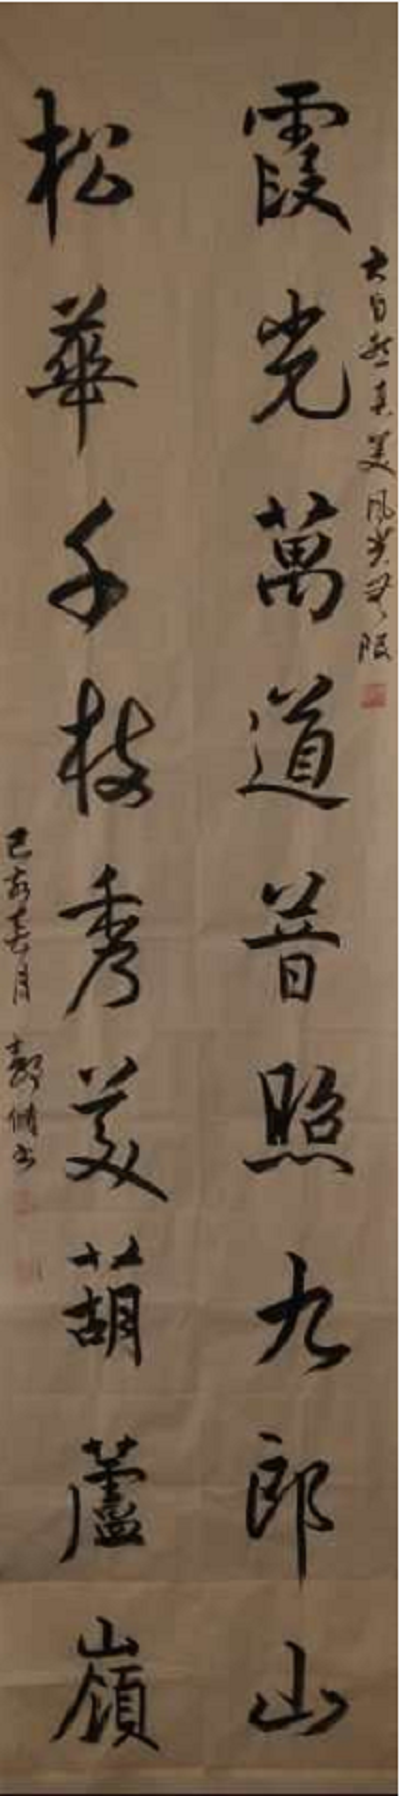 大自然真美风光无限
霞光萬道普照九郎山
松華千枝秀美葫蘆嶺
己亥春月 书